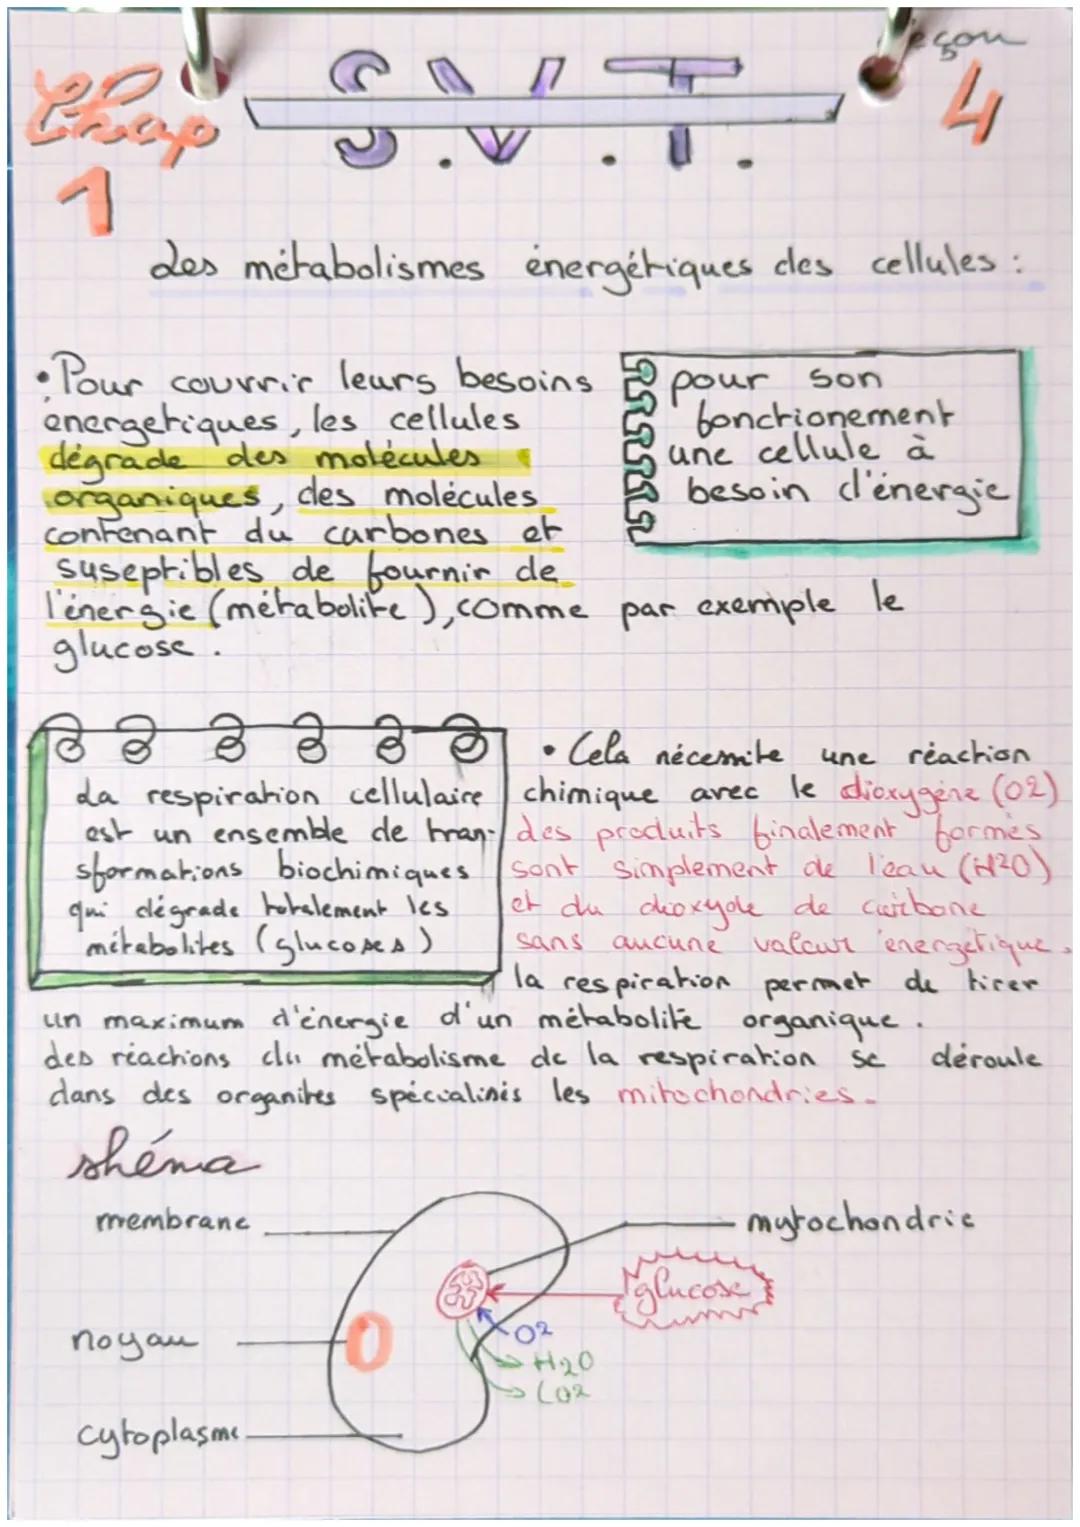 Leçon
4
Chap
1
S.V.T.
Les métabolismes énergétiques des cellules :
• Pour couvrir leurs besoins
énergetiques, les cellules
dégrade des molécules
organiques, des molécules
contenant du carbones et
suseptibles de fournir de
l'énergie (métabolite), comme par exemple le
glucose.
pour son
fonctionement
une cellule à
besoin d'énergie
La respiration cellulaire
est un ensemble de tran-
sformations biochimiques
qui dégrade totalement les
métabolites (glucoses)
• Cela nécessite une réaction
chimique avec le dioxygène (O2)
des produits finalement formés
sont simplement de l'eau (H2O)
et du dioxyde de carbone
sans aucune valeur énergétique.
la respiration permet de tirer
un maximum d'énergie d'un métabolite organique.
des réactions du métabolisme de la respiration se déroule
dans des organites spécialisés les mitochondries.
shéma
membrane
mytochondrie
glucose
noyau
O2
H2O
CO2
cytoplasme